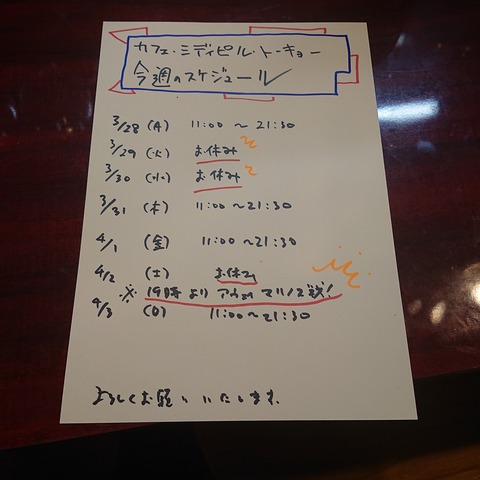 カフェ・ミディピル・トーキョー
今週のスケジュール
3/28 (月) 11:00 ~ 21:30
3/29 (火) お休み
3/30 (水) お休み
3/31 (木) 11:00~21:30
4/1 (金) 11:00~21:30
4/2 (土) お休み
※ 19時より アウェイ マリノス戦!
4/3 (日) 11:00~21:30
よろしくお願いいたします。